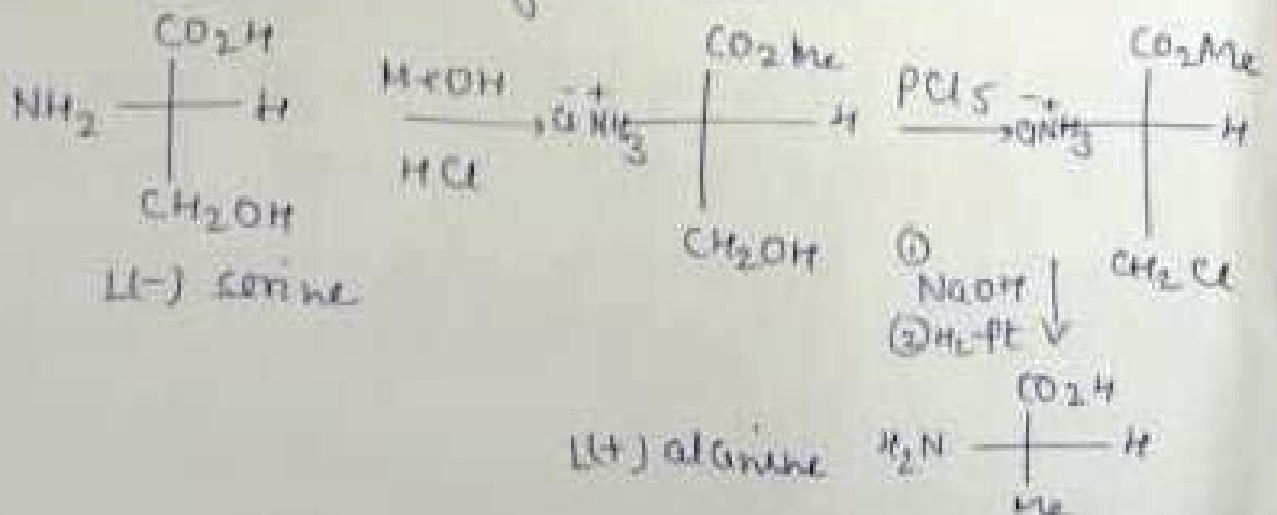 CO2H
NH2 H
CH2OH
L(-) serine
MeOH
HCl
Cl- +NH3 CO2Me H
CH2OH
PCl5
Cl- +NH3 CO2Me H
CH2Cl
①
NaOH
② H2-Pt
CO2H
L(+) alanine H2N H
Me